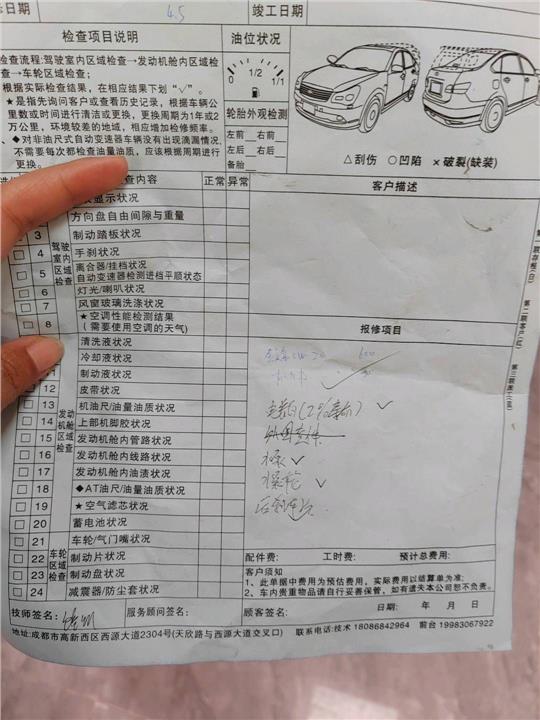 日期
4.5
竣工日期
检查项目说明
油位状况
检查流程:驾驶室内区域检查→发动机舱内区域检
查→车轮区域检查;
根据实际检查结果，在相应结果下划“√”。
★是指先询问客户或查看历史记录，根据车辆公
里数或时间进行清洁或更换，更换周期为1年或2
万公里，环境较差的地域，相应增加检修频率。
、◆对非油尺式自动变速器车辆没有出现滴漏情况，
不需要每次都检查油量油质，应该根据周期进行
更换。
0 1/2 1/1
轮胎外观检测
左前 右前
左后 右后
备胎
△刮伤 ○凹陷 ×破裂(缺装)
查内容 正常 异常
客户描述
显示状况
方向盘自由间隙与重量
3 制动踏板状况
4 手刹状况
5 离合器/挂档状况
自动变速器检测进档平顺状态
6 灯光/喇叭状况
7 风窗玻璃洗涤状况
8 ★空调性能检测结果
(需要使用空调的天气)
驾驶室内区域检查
清洗液状况
冷却液状况
11 制动液状况
12 皮带状况
13 机油尺/油量油质状况
14 上部机脚胶状况
15 发动机舱内管路状况
16 发动机舱内线路状况
17 发动机舱内油渍状况
18 ◆AT油尺/油量油质状况
19 ★空气滤芯状况
20 蓄电池状况
发动机舱区域检查
21 车轮/气门嘴状况
22 制动片状况
23 制动盘状况
24 减震器/防尘套状况
车轮区域检查
报修项目
600
√
√
√
√
第一联存根(白)
第二联客户(红)
第三联
配件费: 工时费: 预计总费用:
客户须知
1、此单据中费用为预估费用，实际费用以结算单为准;
2、车内贵重物品请自行妥善保管，如有遗失本公司恕不负责。
日期: 年 月 日
技师签名:
服务顾问签名:
顾客签名:
地址:成都市高新西区西源大道2304号(天欣路与西源大道交叉口) 联系电话:技术 18086842964 前台 19983067922